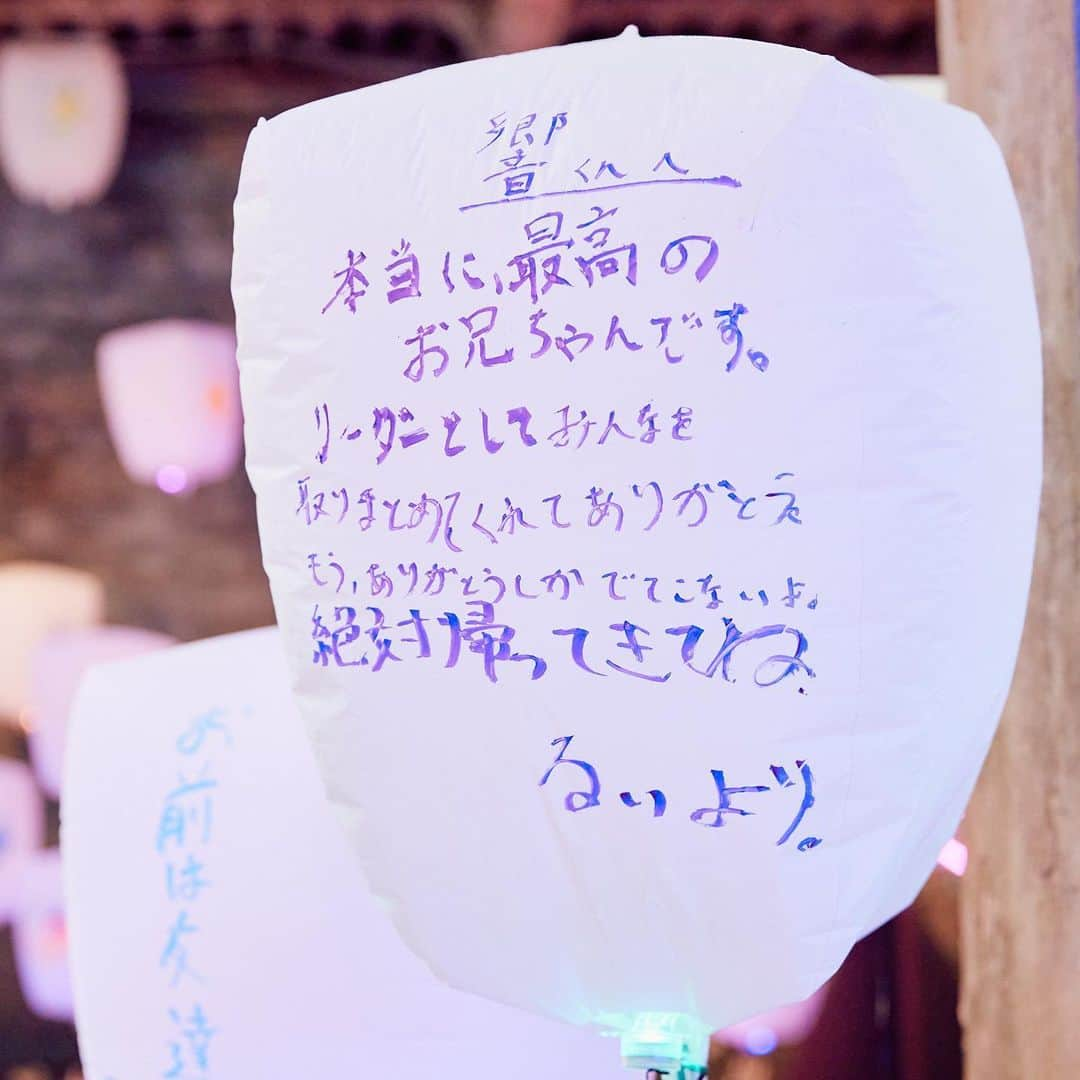 響くんへ
本当に、最高の
お兄ちゃんです。
リーダーとしてみんなを
取りまとめてくれてありがとう
もう、ありがとうしかでてこないよ。
絶対帰ってきてね
るいより。
お前は友達